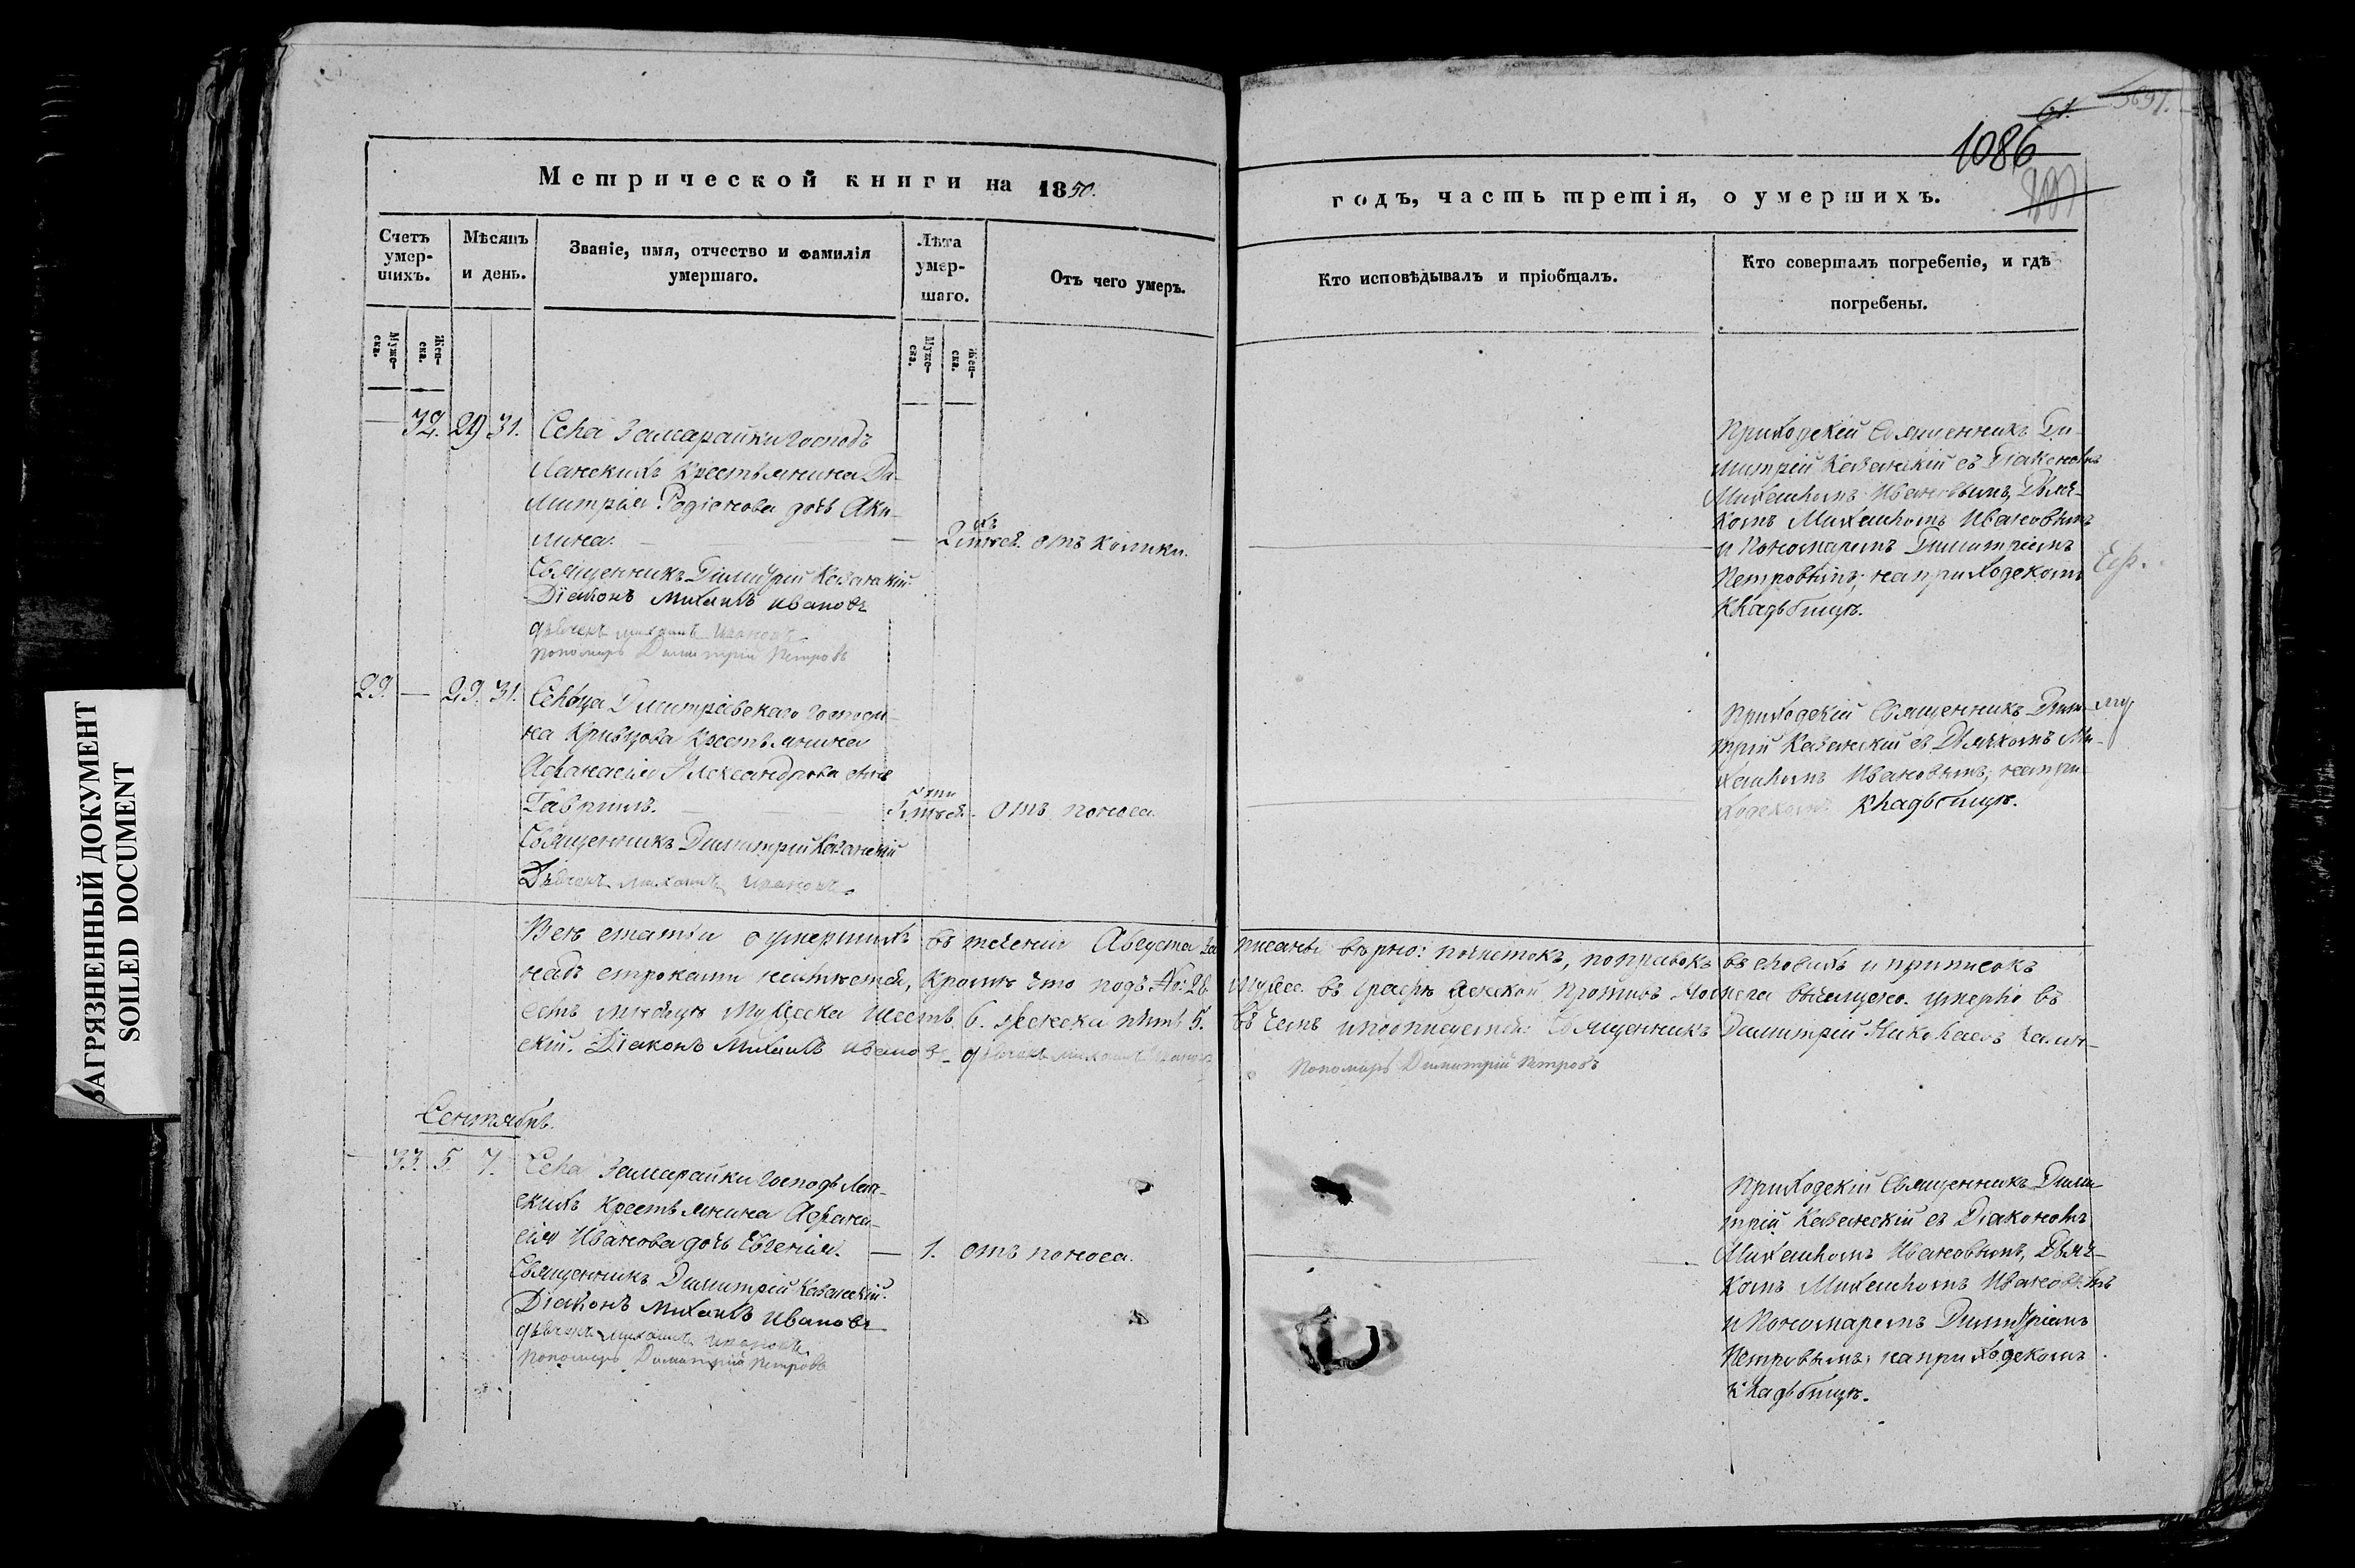 61.
1086
ЗАГРЯЗНЕННЫЙ ДОКУМЕНТ
SOILED DOCUMENT
Метрической книги на 1850.
годъ, часть третія, о умершихъ.
Счетъ умер-шихъ.
Мѣсяцъ и день.
Званіе, имя, отчество и фамилія умершаго.
Лѣта умер-шаго.
Отъ чего умеръ.
Кто исповѣдывалъ и пріобщалъ.
Кто совершалъ погребеніе, и гдѣ погребены.
Муже-ска.
Жен-ска.
Муже-ска.
Жен-ска.
32. 29 31. Села Замарайки Господъ
Ланскихъ Крестьянина Ди-
митрія Родіонова дочь Аки-
лина.
2 мѣсе. отъ колики.
Священникъ Димитрій Казанскій
Діаконъ Михаилъ Ивановъ
дьячекъ михаилъ Ивановъ
пономарь Димитрій Петровъ
Приходскій Священникъ Ди-
митрій Казанскій съ Діакономъ
Михаиломъ Ивановымъ, Дьяч-
комъ Михаиломъ Ивановымъ
и Пономаремъ Димитріемъ
Петровымъ; на приходскомъ
кладбищѣ.
29. — 29. 31. Сельца Димитріевскаго Господи-
на Кривцова Крестьянина
Афанасія Александрова сынъ
Гавріилъ.
отъ поноса.
Священникъ Димитрій Казанскій
Дьячекъ михаилъ Ивановъ
Приходскій Священникъ Дими-
трій Казанскій съ Дьячкомъ Ми-
хаиломъ Ивановымъ; на при-
ходскомъ кладбищѣ.
Всѣ статьи о умершихъ въ теченіи Августа за писаны вѣрно: почистокъ, поправокъ въ словахъ и приписокъ
надъ строками неимѣется, кромѣ что подъ №: 28 въ графѣ женской противъ умерло въ
семъ мѣсяцѣ мужеска шесть 6. женска пять 5. въ чемъ и подписуемся: Священникъ Димитрій Николаевъ Казан-
скій. Діаконъ Михаилъ Ивановъ дьячекъ михаилъ Ивановъ
Пономарь Димитрій Петровъ
Сентябрь.
33. 5. 7. Села Замарайки Господъ Лан-
скихъ крестьянина Афана-
сія Иванова дочь Евгенія. — 1. отъ поноса.
Священникъ Димитрій Казанскій.
Діаконъ Михаилъ Ивановъ
дьячекъ михаилъ Ивановъ
Пономарь Димитрій Петровъ
Приходскій Священникъ Дими-
трій Казанскій съ Діакономъ
Михаиломъ Ивановымъ, Дьяч-
комъ Михаиломъ Ивановымъ
и Пономаремъ Димитріемъ
Петровымъ; на приходскомъ
кладбищѣ.